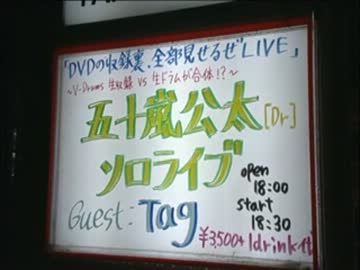 「DVDの収録裏、全部見せるぜLIVE」
～V-Drums 生収録 VS 生ドラムが合体!?～
五十嵐公太[Dr]
ソロライブ
open
18:00
Guest: Tag
start
18:30
¥3,500+1drink代